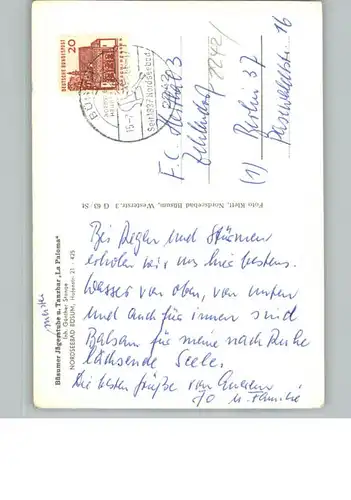 20
DEUTSCHE BUNDESPOST
Seit 1837 Nordseebad
F.C. Hertha 03
Zehlendorf
(1) Berlin 37
16
Foto Klett, Nordseebad Büsum, Westerstr. 3 G 63 St
Büsumer Jägerstube u. Tanzbar „La Paloma“
Inh. Günther Stange
NORDSEEBAD BÜSUM, Hafenstr. 21 - 425
Bei Regen und Stürmen
erholen wir uns hier bestens.
Wasser von oben, von unten
und auch für innen sind
Balsam für meine nach Ruhe
lächzende Seele.
Die besten Grüße von Eurem
Jo u. Familie